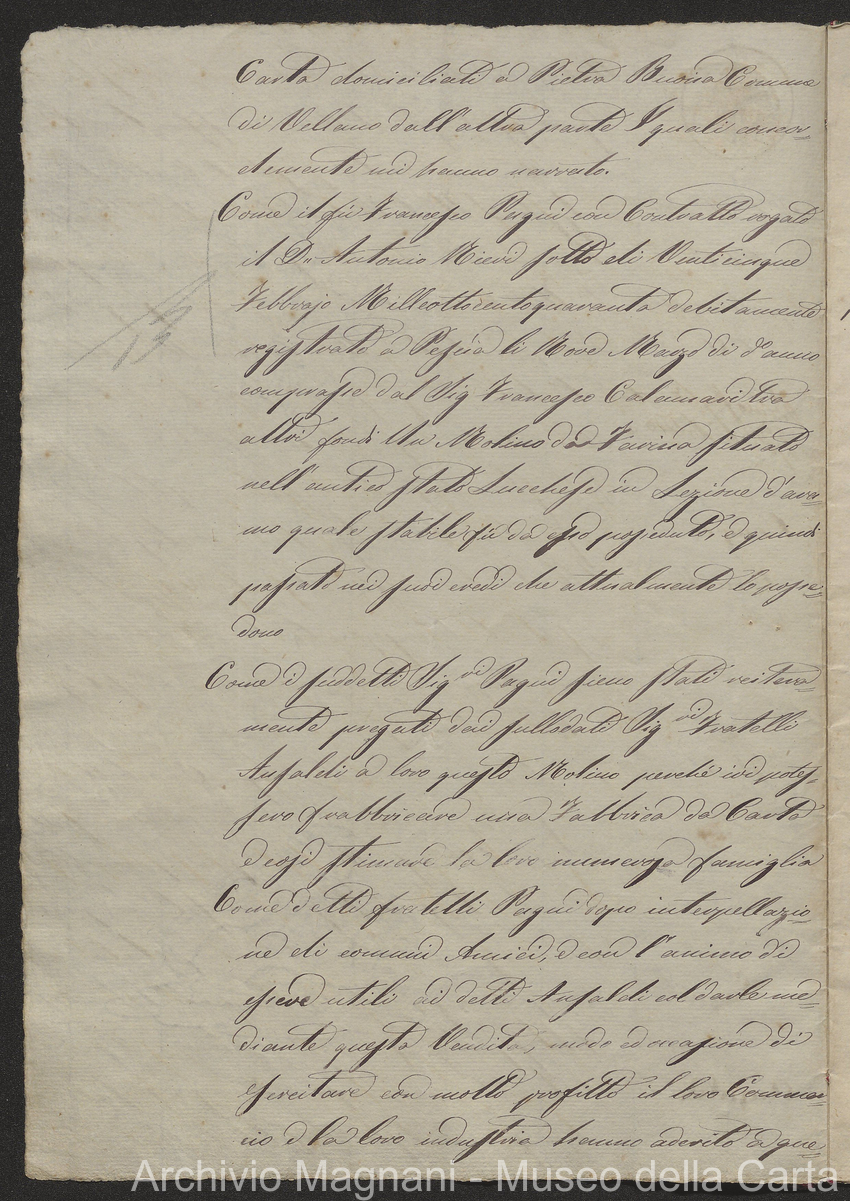 Carta domiciliati a Pietra Buona Comune
di Vellano dall'altra parte I quali concor=
demente mi hanno narrato.
Come il fù Francesco Pagni con Contratto rogato
il Dr. Antonio Nieri sotto di Venticinque
Febbrajo Milleottocentoquaranta debitamente
registrato a Pescia li Nove Marzo di do. anno
comprasse dal Sig Francesco Calamari tra
altri fondi Un Molino da Farina situato
nell'antico stato Lucchese in Sezione d'ara=
mo quale stabile fù da esso posseduto, e quindi
passato nei suoi eredi che attualmente lo posse=
dono
Come i suddetti Sigri Pagni sieno stati reitera=
mente pregati dai sullodati Sigri Fratelli
Ansaldi a loro questo Molino perchè ivi potes=
sero frabbricare una Fabbrica da Carta
e così stimare la loro numerosa famiglia
Come detti fratelli Pagni dopo interpellazio=
ne di comuni Amici, e con l'animo di
essere utili ai detti Ansaldi col darle me=
diante questa Vendita, modo ed occasione di
esercitare con molto profitto il loro Commer=
cio e la loro industria hanno aderito a que=
Archivio Magnani - Museo della Carta